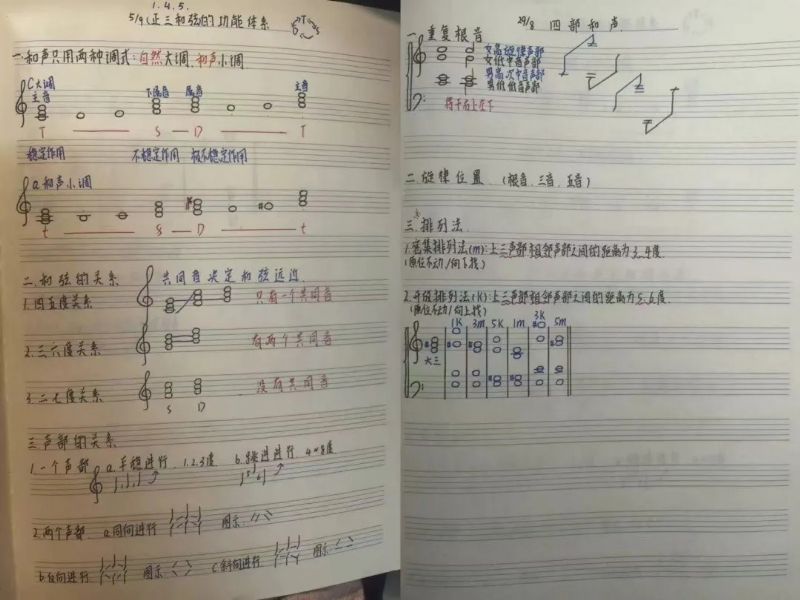 1.4.5.
5/9 正三和弦的功能体系
一.和声只用两种调式:自然大调.和声小调
C大调
主音 下属音 属音 主音
T S D T
稳定作用 不稳定作用 极不稳定作用
a和声小调
t s D t
二.和弦的关系 共同音决定和弦远近.
1.四五度关系 只有一个共同音
2.三六度关系 有两个共同音
3.二七度关系 没有共同音
S D
三.声部的关系
1.一个声部 a.平稳进行.1.2.3度 b.跳进进行.4~8度
2.两个声部. a.同向进行 图示
b.反向进行 图示 c.斜向进行 图示
29/8 四部和声.
一.重复根音
女高旋律声部
女低中音声部
男高次中音声部
男低低音声部
符干右上左下
二.旋律位置.(根音.三音.五音)
三.排列法.
1.密集排列法(m):上三声部相邻声部之间的距离为3.4度.
(原位不动/向下找)
2.开放排列法(K):上三声部相邻声部之间的距离为5.6度.
(原位不动/向上找)
1K 3m 5K 1m 3K 5m
大三